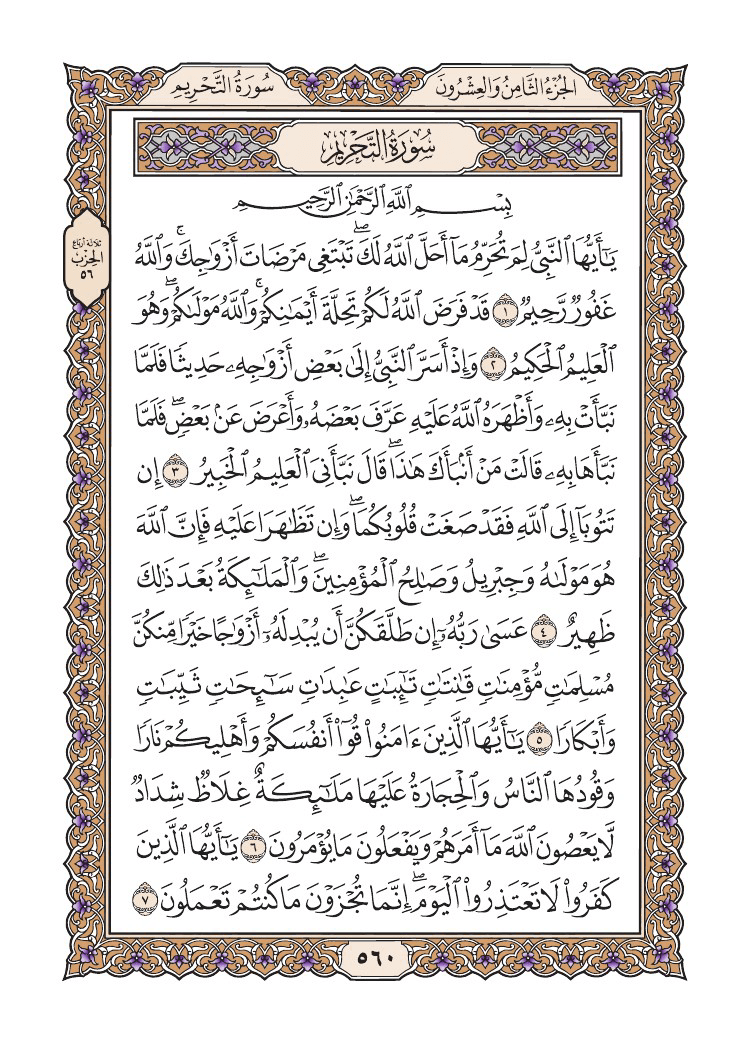 الجُزْءُ الثَّامِنُ وَالعِشْرُونَ
سُورَةُ التَّحْرِيمِ
سُورَةُ التَّحْرِيمِ
ثلاثة أرباع
الحِزْب
٥٦
بِسْمِ ٱللَّهِ ٱلرَّحْمَٰنِ ٱلرَّحِيمِ
يَٰٓأَيُّهَا ٱلنَّبِيُّ لِمَ تُحَرِّمُ مَآ أَحَلَّ ٱللَّهُ لَكَۖ تَبْتَغِي مَرْضَاتَ أَزْوَٰجِكَۚ وَٱللَّهُ
غَفُورٞ رَّحِيمٞ ١ قَدْ فَرَضَ ٱللَّهُ لَكُمْ تَحِلَّةَ أَيْمَٰنِكُمْۚ وَٱللَّهُ مَوْلَىٰكُمْۖ وَهُوَ
ٱلْعَلِيمُ ٱلْحَكِيمُ ٢ وَإِذْ أَسَرَّ ٱلنَّبِيُّ إِلَىٰ بَعْضِ أَزْوَٰجِهِۦ حَدِيثٗا فَلَمَّا
نَبَّأَتْ بِهِۦ وَأَظْهَرَهُ ٱللَّهُ عَلَيْهِ عَرَّفَ بَعْضَهُۥ وَأَعْرَضَ عَنۢ بَعْضٖۖ فَلَمَّا
نَبَّأَهَا بِهِۦ قَالَتْ مَنْ أَنۢبَأَكَ هَٰذَاۖ قَالَ نَبَّأَنِيَ ٱلْعَلِيمُ ٱلْخَبِيرُ ٣ إِن
تَتُوبَآ إِلَى ٱللَّهِ فَقَدْ صَغَتْ قُلُوبُكُمَاۖ وَإِن تَظَٰهَرَا عَلَيْهِ فَإِنَّ ٱللَّهَ
هُوَ مَوْلَىٰهُ وَجِبْرِيلُ وَصَٰلِحُ ٱلْمُؤْمِنِينَۖ وَٱلْمَلَٰٓئِكَةُ بَعْدَ ذَٰلِكَ
ظَهِيرٌ ٤ عَسَىٰ رَبُّهُۥٓ إِن طَلَّقَكُنَّ أَن يُبْدِلَهُۥٓ أَزْوَٰجًا خَيْرٗا مِّنكُنَّ
مُسْلِمَٰتٖ مُّؤْمِنَٰتٖ قَٰنِتَٰتٖ تَٰٓئِبَٰتٍ عَٰبِدَٰتٖ سَٰٓئِحَٰتٖ ثَيِّبَٰتٖ
وَأَبْكَارٗا ٥ يَٰٓأَيُّهَا ٱلَّذِينَ ءَامَنُوا۟ قُوٓا۟ أَنفُسَكُمْ وَأَهْلِيكُمْ نَارٗا
وَقُودُهَا ٱلنَّاسُ وَٱلْحِجَارَةُ عَلَيْهَا مَلَٰٓئِكَةٌ غِلَاظٞ شِدَادٞ
لَّا يَعْصُونَ ٱللَّهَ مَآ أَمَرَهُمْ وَيَفْعَلُونَ مَا يُؤْمَرُونَ ٦ يَٰٓأَيُّهَا ٱلَّذِينَ
كَفَرُوا۟ لَا تَعْتَذِرُوا۟ ٱلْيَوْمَۖ إِنَّمَا تُجْزَوْنَ مَا كُنتُمْ تَعْمَلُونَ ٧
٥٦٠